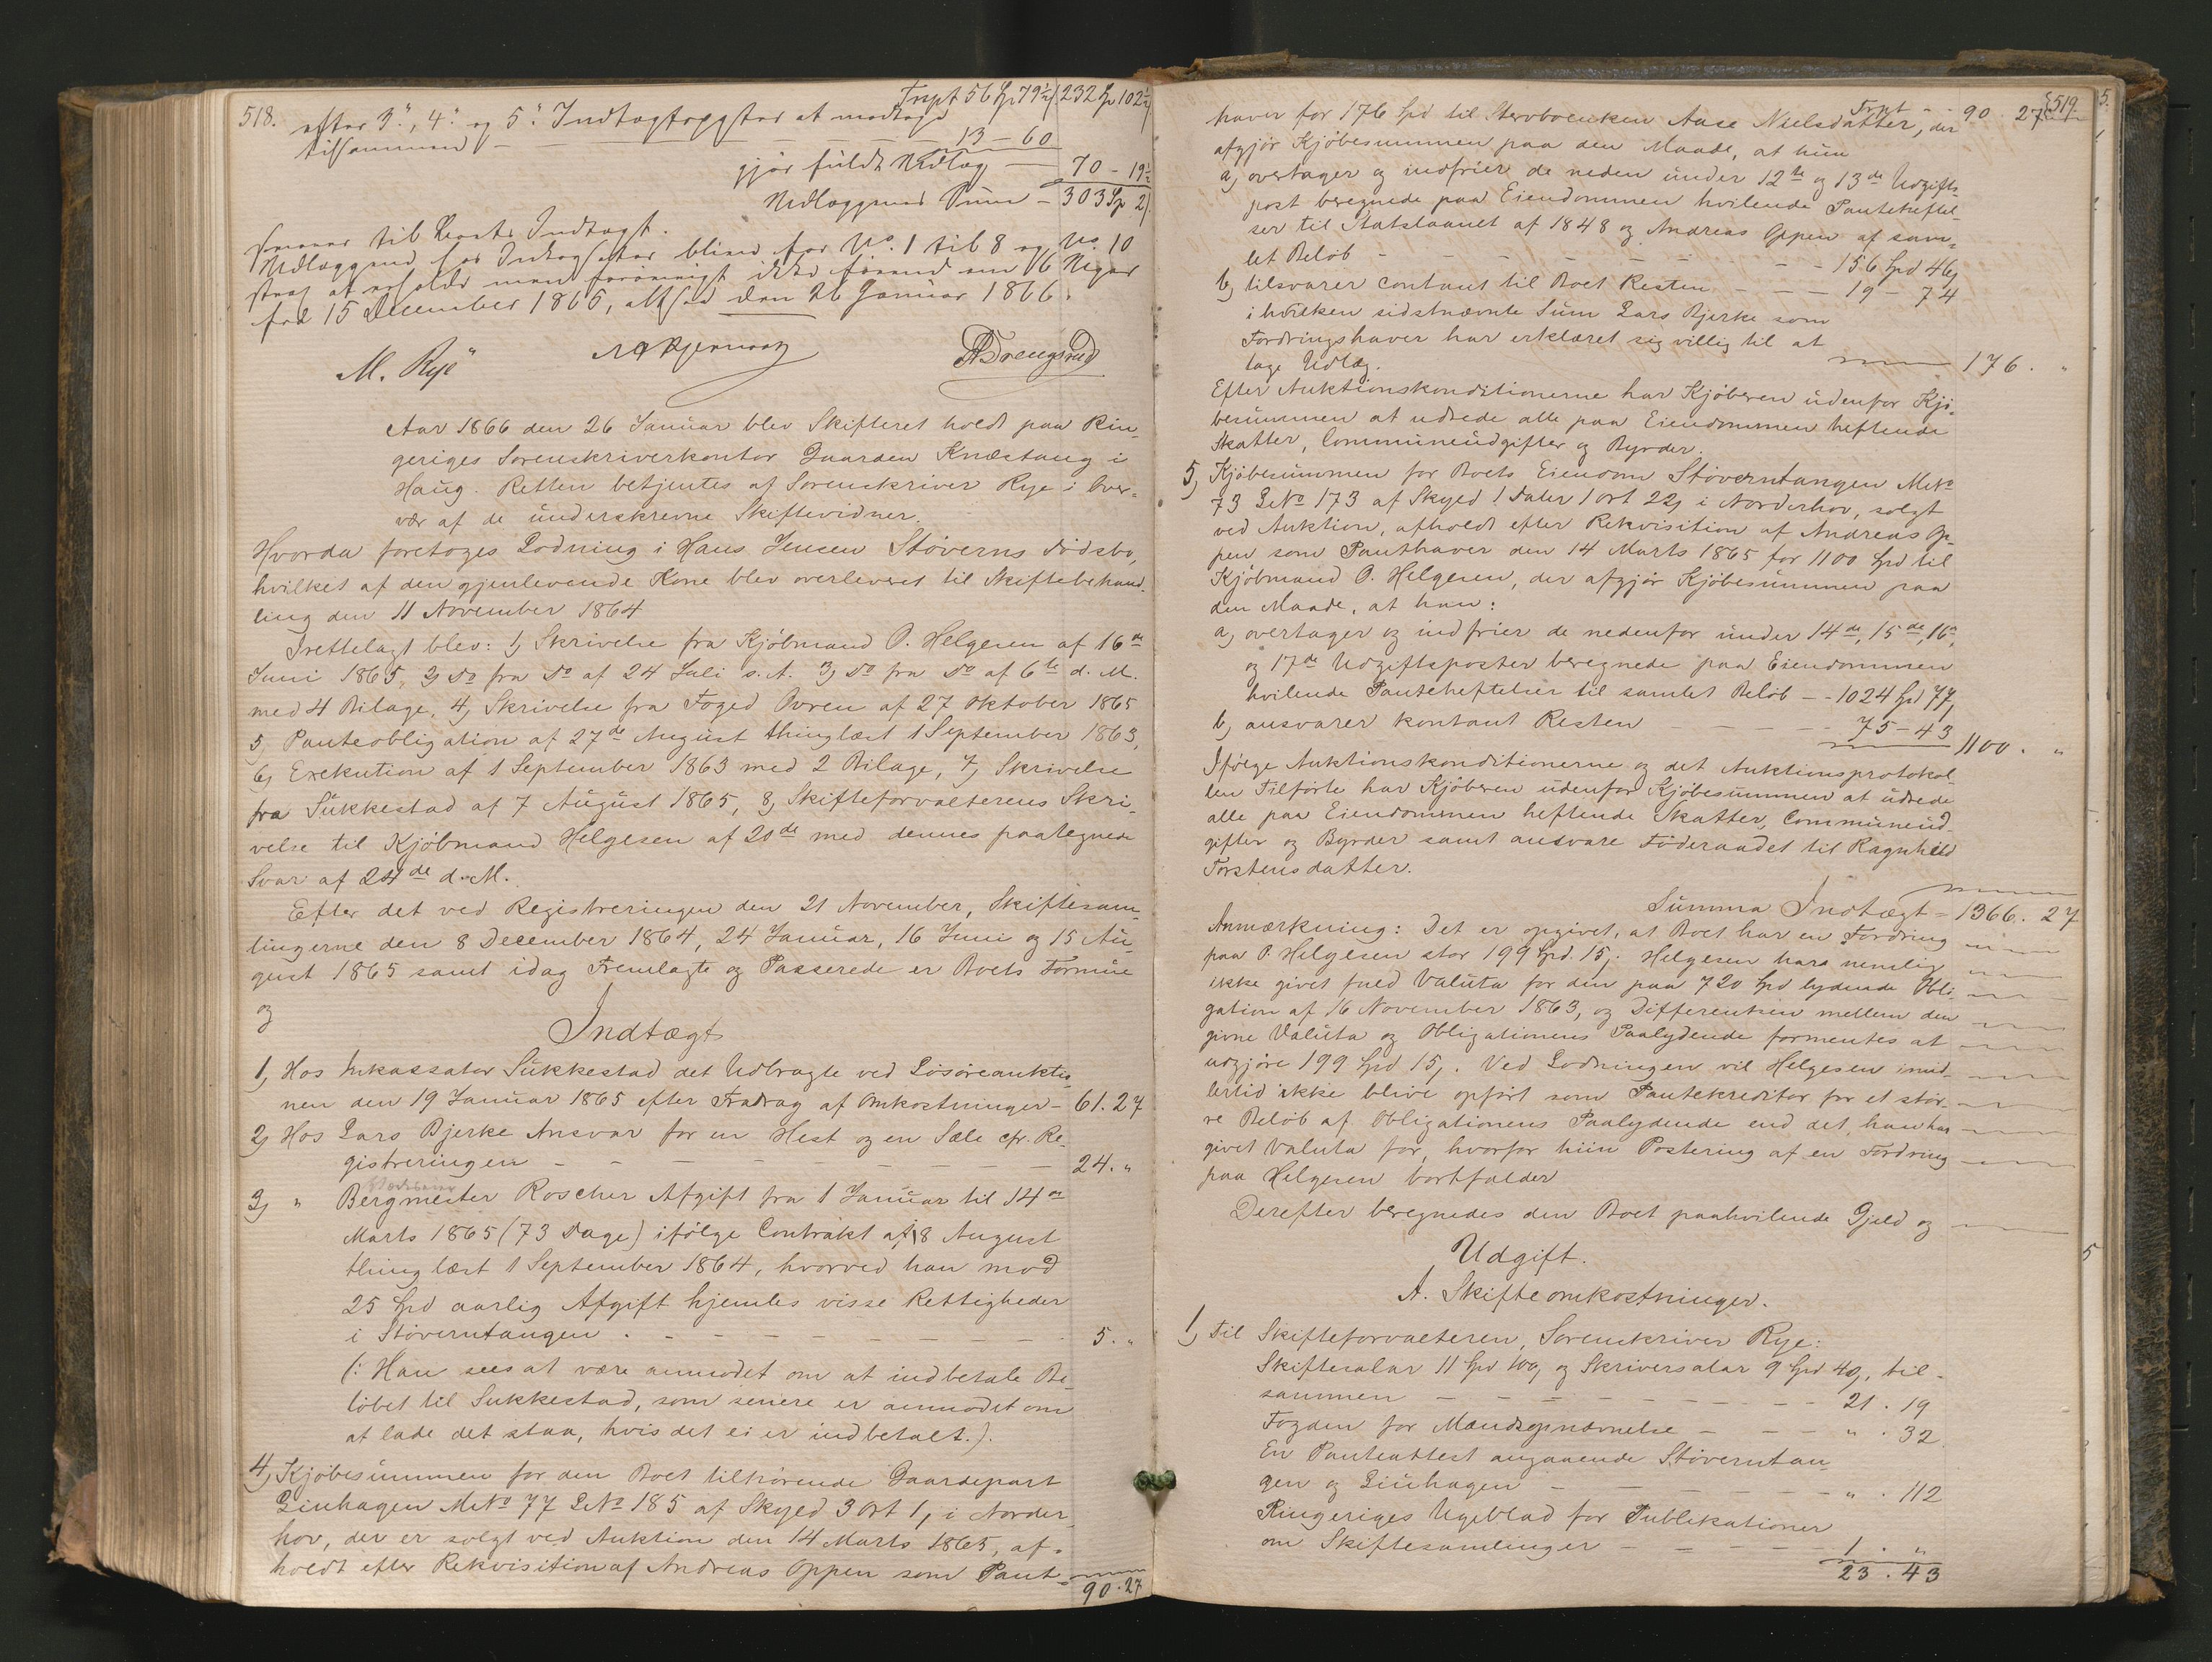 518.
Trspt 56 Sp 79½ß 232 Sp 102½ß
efter 3", 4" og 5" Indtægtsposter at modtage
tilsammen — 13 - 60
gjør fuldt Udlæg — 70 - 19½
Udlæggenes Sum - 303 Sp 2ß.
svarer til Boets Indtægt.
Udlæggene hos Indtægter bliver for No. 1 til 8 og No. 10
strax at erholde men forøvrigt ikke førend om 6 Uger
fra 15 December 1865, altsaa den 26 Januar 1866.
M. Rye
A Drengsrud
Aar 1866 den 26 Januar blev Skifteret holdt paa Rin-
geriges Sorenskriverkontor Gaarden Knæstang i
Haug. Retten betjentes af Sorenskriver Rye i Over-
vær af de underskrevne Skiftevidner.
Hvorda foretoges Lodning i Hans Jensen Støverns Dødsbo,
hvilket af den gjenlevende Kone blev overleveret til Skiftebehand-
ling den 11 November 1864
Irettelagt blev: 1, Skrivelse fra Kjøbmand O. Helgesen af 16de
Juni 1865, 2, do fra do af 24 Juli s. A. 3, do fra do af 6te d. M.
med 4 Bilage, 4, Skrivelse fra Foged Buren af 27 Oktober 1865
5, Panteobligation af 27de August thinglæst 1 September 1863,
6, Exekution af 1 September 1863 med 2 Bilage, 7, Skrivelse
fra Sukkestad af 7 August 1865, 8, Skifteforvalterens Skri-
velse til Kjøbmand Helgesen af 20de med dennes paategnede
Svar af 24de d. M.
Efter det ved Registreringen den 21 November, Skiftesam-
lingerne den 8 December 1864, 24 Januar, 16 Juni og 15 Au-
gust 1865 samt idag Fremlagte og Passerede er Boets Formue
og
Indtægt
1, Hos Inkassator Sukkestad det Udbragte ved Løsøreauktio-
nen den 19 Januar 1865 efter Fradrag af Omkostninger - 61. 27
2, Hos Lars Bjerke Ansvar for en Hest og en Sæle cfr. Re-
gistreringen — 24. "
3, " Bergmester Roscher Afgift fra 1 Januar til 14de
Marts 1865 (73 Dage) ifølge Contrakt af 18 August
thinglæst 1 September 1864, hvorved han mod
25 Spd aarlig Afgift hjemles visse Rettigheder
i Støverntangen . — 5. "
(: Han sees at være anmodet om at indbetale Be-
løbet til Sukkestad, som senere er anmodet om
at lade det staa, hvis det ei er indbetalt.).
4, Kjøbesummen for den Boet tilhørende Gaardepart
Liuhagen MNo 77 LNo 185 af Skyld 3 Ort 1ß i Norder-
hov, der er solgt ved Auktion den 14 Marts 1865, af-
holdt efter Rekvisition af Andreas Oppen som Pant-
90. 27
519.
Trpt - - 90. 27
haver for 176 Spd til Stervboenken Aase Nielsdatter, der
afgjør Kjøbesummen paa den Maade, at hun
a, overtager og indfrier de neden under 12te og 13de Udgifts
post beregnede paa Eiendommen hvilende Panteheftel-
ser til Statslaanet af 1848 og Andreas Oppen af sam-
let Beløb — 156 Spd 46ß
b, tilsvarer contant til Boet Resten — 19 - 74
i hvilken sidstnævnte Sum Lars Bjerke som
Fordringshaver har erklæret sig villig til at
tage Udlæg. — 176. "
Efter Auktionskonditionerne har Kjøberen udenfor Kjø-
besummen at udrede alle paa Eiendommen heftende
Skatter, Communeudgifter og Byrder.
5, Kjøbesummen for Boets Eiendom Støverntangen MNo
73 LNo 173 af Skyld 1 Daler 1 Ort 22ß i Norderhov, solgt
ved Auktion, afholdt efter Rekvisition af Andreas Op-
pen som Panthaver den 14 Marts 1865 for 1100 Spd til
Kjøbmand O. Helgesen, der afgjør Kjøbesummen paa
den Maade, at han:
a, overtager og indfrier de nedenfor under 14de, 15de, 16de
og 17de Udgiftsposter beregnede paa Eiendommen
hvilende Panteheftelser til samlet Beløb - - 1024 Spd 77ß
b, ansvarer kontant Resten — 75 - 43
1100. "
Ifølge Auktionskonditionerne og det Auktionsprotokol-
len Tilførte har Kjøberen udenfor Kjøbesummen at udrede
alle paa Eiendommen heftende Skatter, Communeud-
gifter og Byrder samt ansvare Føderaadet til Ragnhild
Torstensdatter.
Summa Indtægt - 1366. 27
Anmærkning: Det er opgivet, at Boet har en Fordring
paa O. Helgesen stor 199 Spd. 15ß. Helgesen har nemlig
ikke givet fuld Valuta for den paa 720 Spd lydende Obli-
gation af 16 November 1863, og Differensen mellem den
givne Valuta og Obligationens Paalydende formentes at
udgjøre 199 Spd 15ß. Ved Lodningen vil Helgesen imid-
lertid ikke blive opført som Pantekreditor for et stør-
re Beløb af Obligationens Paalydende end det, han har
givet Valuta for, hvorfor hiin Postering af en Fordring
paa Helgesen bortfalder
Derefter beregnedes den Boet paahvilende Gjeld og
Udgift.
A. Skifteomkostninger.
1, Til Skifteforvalteren, Sorenskriver Rye:
Skiftesalar 11 Spd 100ß og Skriversalar 9 Spd 40ß, til-
sammen — 21. 19
Fogden for Mandsopnævnelse — ". 32
En Panteattest angaaende Støverntan-
gen og Liuhagen — ". 112
Ringeriges Ugeblad for Publikationer
om Skiftesamlinger — 1. "
23. 43